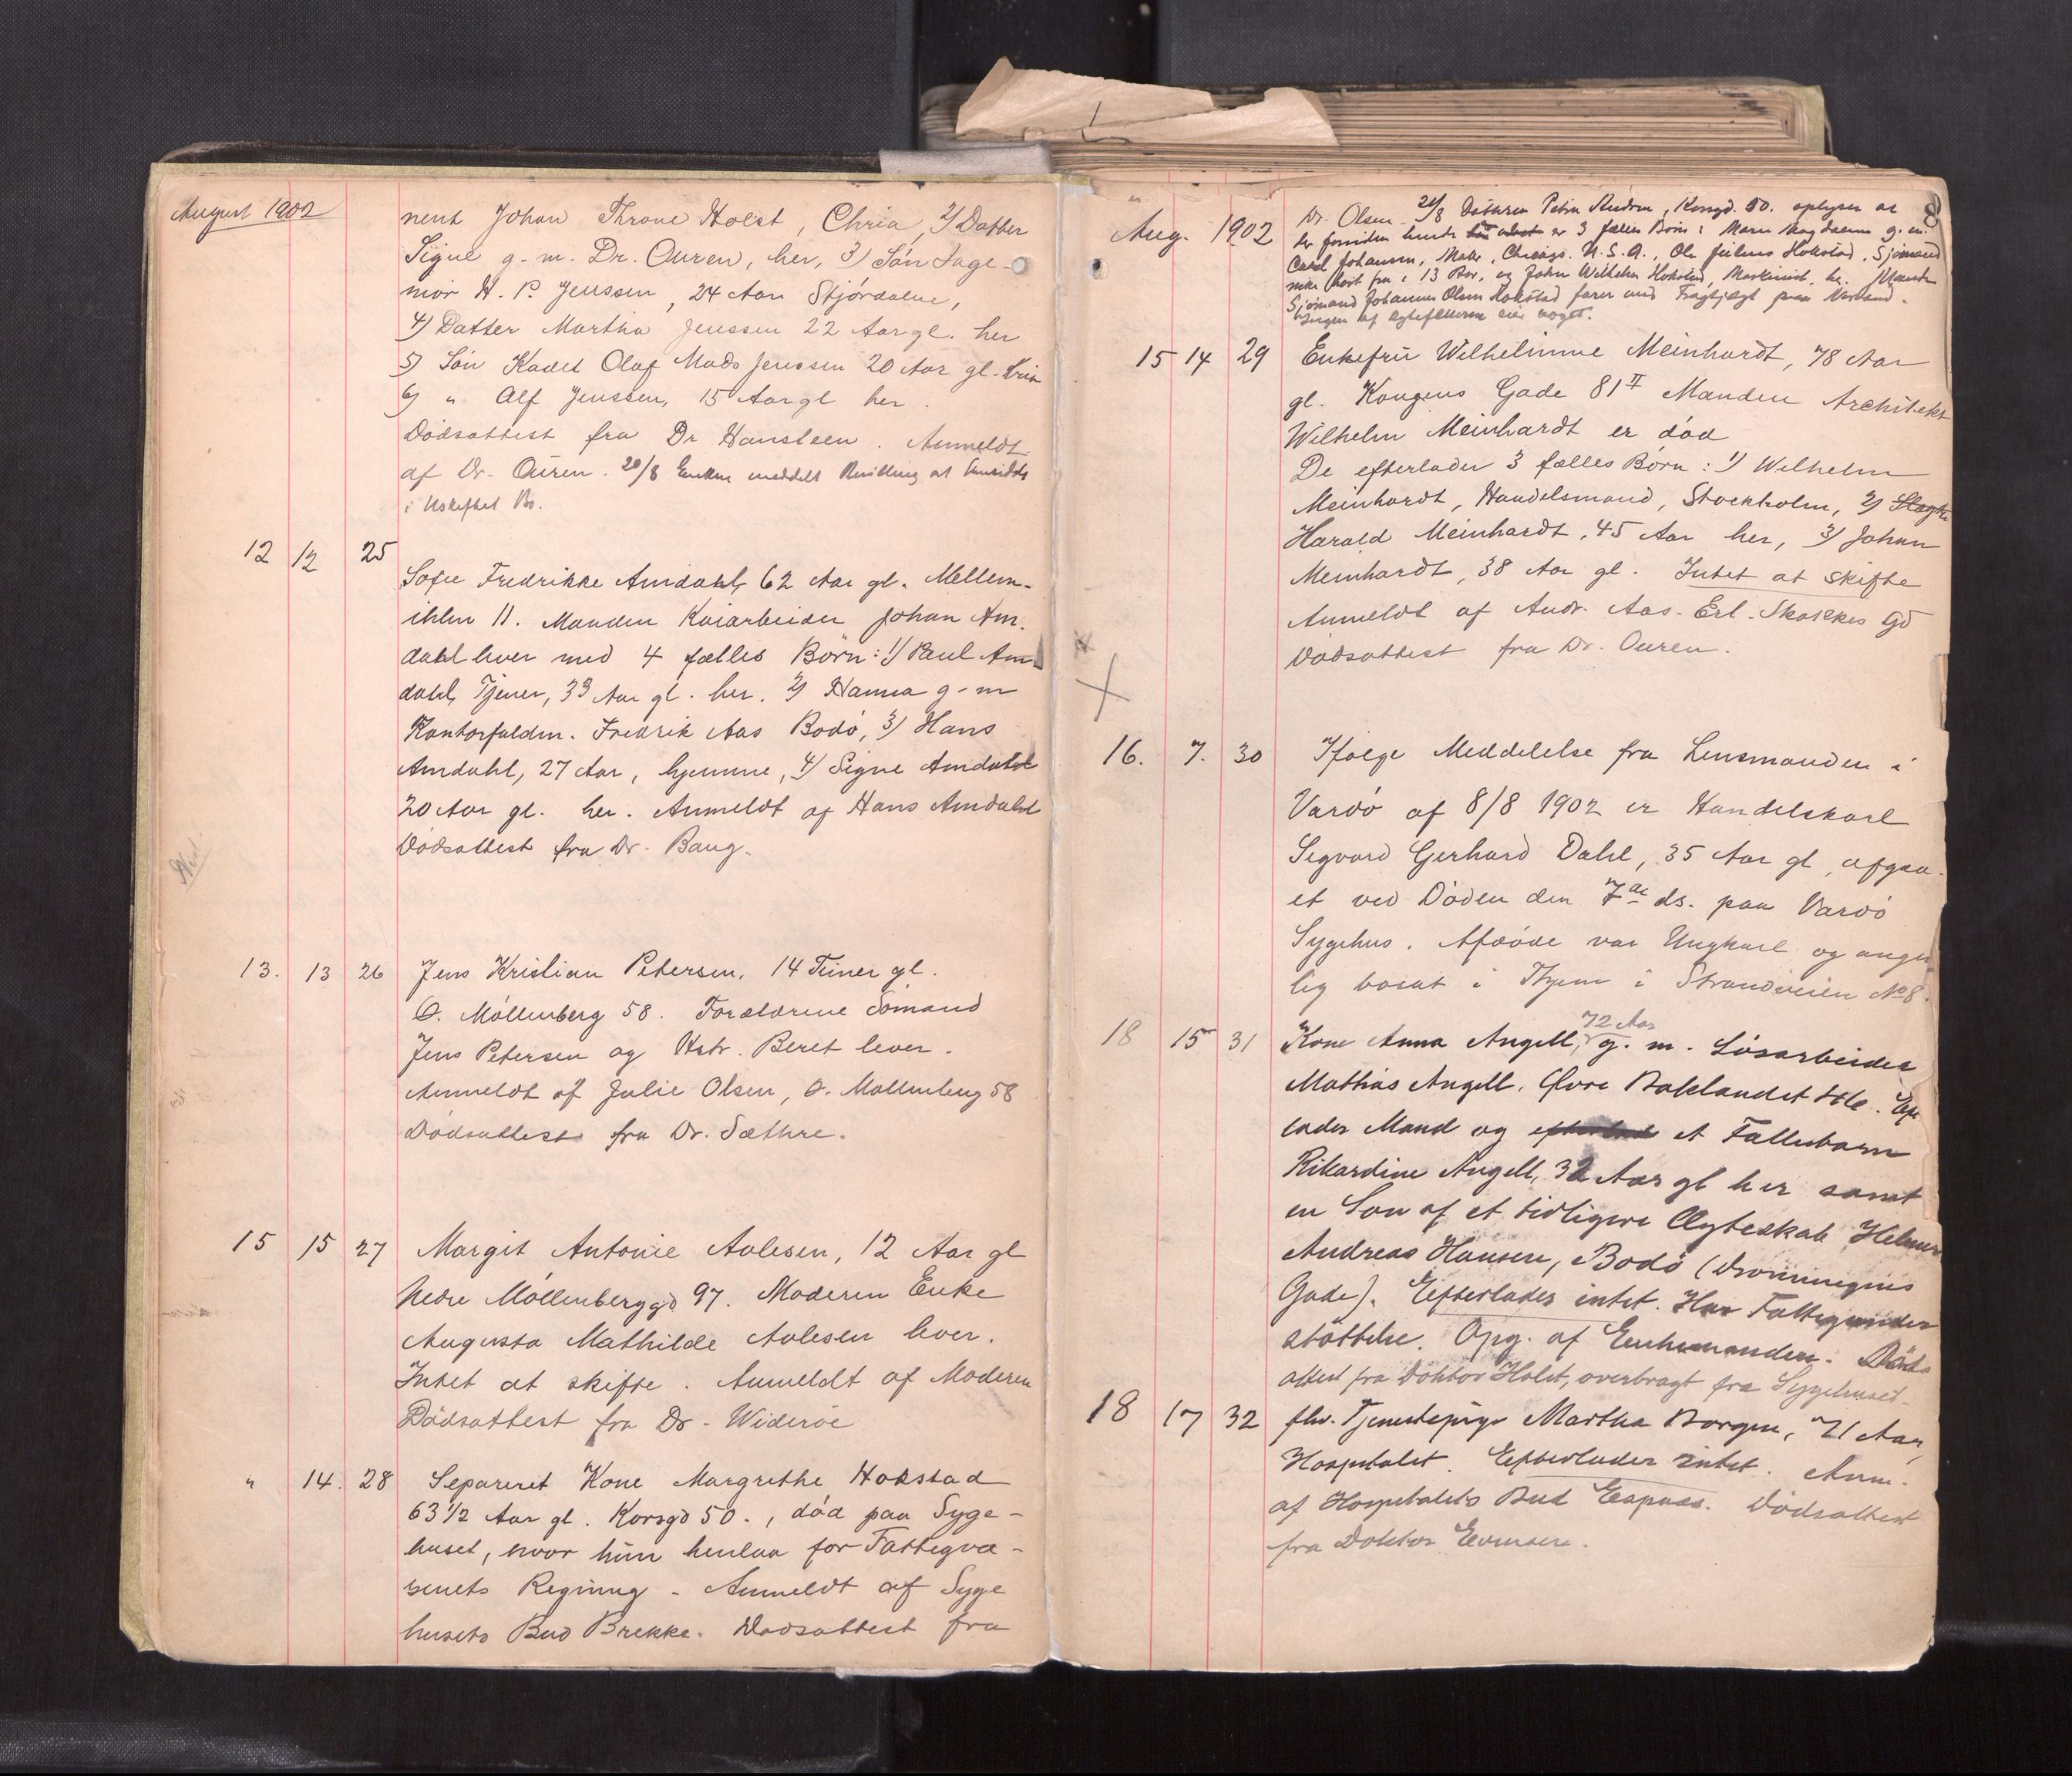 August 1902
nent Johan Throne Holst, Chria, 2) Datter
Signe g. m. Dr. Ouren, her, 3) Sön Inge-
niör H. P. Jenssen, 24 Aar Stjördalen,
4) Datter Martha Jenssen 22 Aar gl. her
5) Sön Kadet Olaf Mads Jenssen 20 Aar gl. Kria
6) " Alf Jenssen, 15 Aar gl her.
Dödsattest fra Dr Hansteen. Anmeldt
af Dr. Ouren. 20/8 Enken meddelt Bevilling at hensidde
i Uskiftet Bo.
12 12 25
Sofie Fredrikke Amdahl, 62 Aar gl. Mellem-
ihlen 11. Manden Kaiarbeider Johan Am-
dahl lever med 4 fælles Börn: 1) Paul Am-
dahl, Tjener, 33 Aar gl. her. 2) Hanna g. m
Kontorfuldm. Fredrik Aas Bodö, 3) Hans
Amdahl, 27 Aar, hjemme, 4) Signe Amdahl
20 Aar gl. her. Anmeldt af Hans Amdahl
Dödsattest fra Dr. Bang.
13. 13 26 Jens Kristian Petersen, 14 Timer gl.
Ö. Möllenberg 58. Forældrene Sömand
Jens Petersen og Hstr. Beret lever.
Anmeldt af Julie Olsen, Ö. Möllenberg 58
Dödsattest fra Dr. Sæthre.
15 15 27 Margit Antonie Aalesen, 12 Aar gl
Nedre Möllenberggd 97. Moderen Enke
Augusta Mathilde Aalesen lever.
Intet at skifte. Anmeldt af Moderen
Dödsattest fra Dr. Wideröe
" 14. 28 Separeret Kone Margrethe Hokstad
63 1/2 Aar gl. Korsgd 50., död paa Syge-
huset, hvor hun henlaa for Fattigvæ-
senets Regning - Anmeldt af Syge
husets Bud Brekke. Dödsattest fra
Aug. 1902 Dr. Olsen. 20/8 Datteren Petra, Korsgd. 50. oplyser at
der foruden hende er 3 fælles Börn: Maren Magdalena g. m.
Carl Johansen, Maler, Chicago. U.S.A., Ole Julius Hokstad, Sjömand
reiste bort fra i 13 Aar, og Johan Wilhelm Hokstad, Maskinist, her. Manden
Sjömand Johannes Olsen Hokstad farer med Fragtjægt paa Nordland.
Ingen af Ægtefællerne eier noget.
15 14 29 Enkefru Wilhelmine Meinhardt, 78 Aar
gl. Kongens Gade 81 II Manden Architekt
Wilhelm Meinhardt er död
De efterlader 3 fælles Börn: 1) Wilhelm
Meinhardt, Handelsmand, Stockholm, 2)
Harald Meinhardt, 45 Aar her, 3) Johan
Meinhardt, 38 Aar gl. Intet at skifte
Anmeldt af Andr. Aas. Erl. Skakkes Gd
Dödsattest fra Dr. Ouren.
16. 7. 30 Ifölge Meddelelse fra Lensmanden i
Vardö af 8/8 1902 er Handelskarl
Segvard Gerhard Dahl, 35 Aar gl, afgaa-
et ved Döden den 7de ds. paa Vardö
Sygehus. Afdöde var Ungkarl og angive
lig bosat i Thjem i Strandveien No 8.
72 Aar
18 15 31 Kone Anna Angell, g. m. Lösarbeider
Mathias Angell, Övre Baklandet. Efter
lader Mand og efterlad et Fællesbarn
Rikardine Angell, 32 Aar gl her samt
en Sön af et tidligere Ægteskab Helmer
Andreas Hansen, Bodö (Dronningens
Gade). Efterlader intet. Har Fattigunder
stöttelse. Opg. af Enkemanden. Döds
attest fra Doktor Holst, overbragt fra Sygehuset.
18 17 32 fhv. Tjenestepige Martha Borgen, 71 Aar,
Hospitalet. Efterlader intet. Anm.
af Hospitalets Bud Espaas. Dödsattest
fra Doktor Evensen.